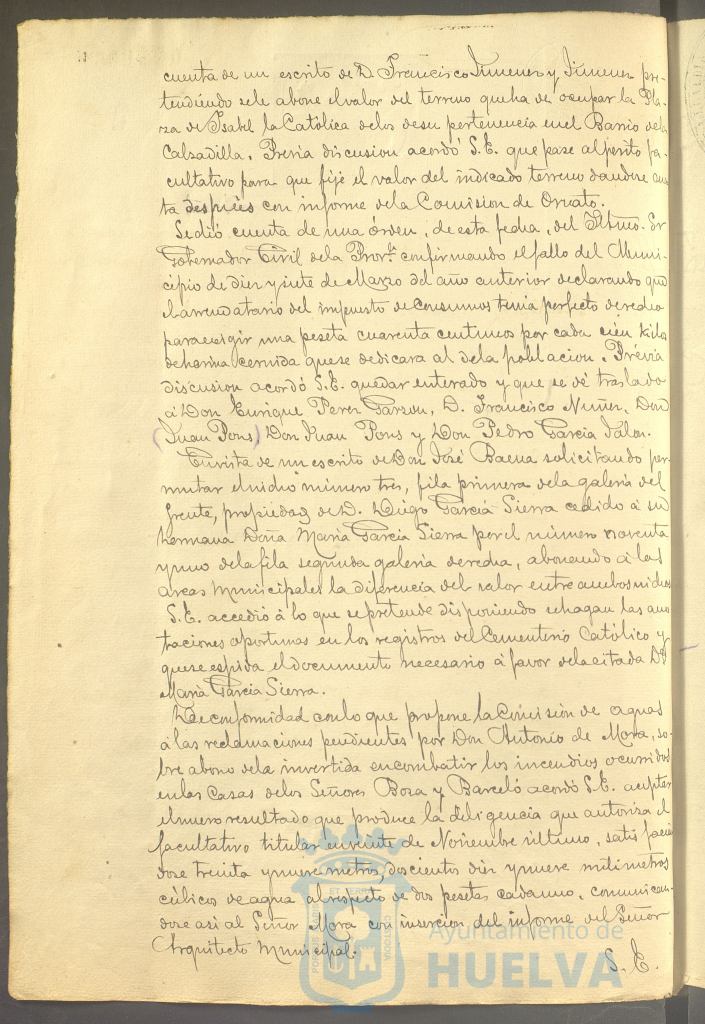 cuenta de un escrito de D. Francisco Jimenez y Jimenez pre-
tendiendo se le abone el valor del terreno que ha de ocupar la Pla-
za de Isabel la Católica de los de su pertenencia en el Barrio de la
Calzadilla. Prévia discusion acordó S.E. que pase al perito fa-
cultativo para que fije el valor del indicado terreno dandose cuen
ta despues con informe de la Comision de Ornato.
Se dió cuenta de una órden, de esta fecha, del Iltmo. Sr
Gobernador Civil de la Prov.ª confirmando el fallo del Muni-
cipio de diez y siete de Marzo del año anterior declarando que
el arrendatario del impuesto de consumos tenia perfecto derecho
para exigir una peseta cuarenta centimos por cada cien kilos
de harina cernida que se dedicara al de la poblacion. Prévia
discusion acordó S.E. quedar enterado y que se dé traslado
á Don Enrique Perez Garzon, D. Francisco Nuñez, Don
(Juan Pons) Don Juan Pons y Don Pedro Garcia Jalon.
En vista de un escrito de Don José Baena solicitando per-
mutar el nicho número tres, fila primera de la galeria del
frente, propiedad de D. Diego Garcia Sierra cedido á su
hermana Doña Maria Garcia Sierra por el número noventa
y uno de la fila segunda galeria derecha, abonando á las
arcas municipales la diferencia del valor entre ambos nichos
S.E. accedió á lo que se pretende disponiendo se hagan las ano
taciones oportunas en los registros del Cementerio Católico y
que se espida el documento necesario á favor de la citada Dª
Maria Garcia Sierra.
De conformidad con lo que propone la Comision de aguas
á las reclamaciones pendientes por Don Antonio de Mora, so-
bre abono de la invertida en combatir los incendios ocurridos
en las Casas de los Señores Boza y Barceló acordó S.E. aceptar
el nuevo resultado que produce la diligencia que autoriza el
facultativo titular en veinte de Noviembre último, satisfacien
dose treinta y nueve metros, doscientos diez y nueve milimetros
cúbicos de agua al respecto de dos pesetas cada uno, comunican-
dose asi al Señor Mora con insercion del informe del Señor
Arquitecto Municipal.
S. E.
Ayuntamiento de
HUELVA